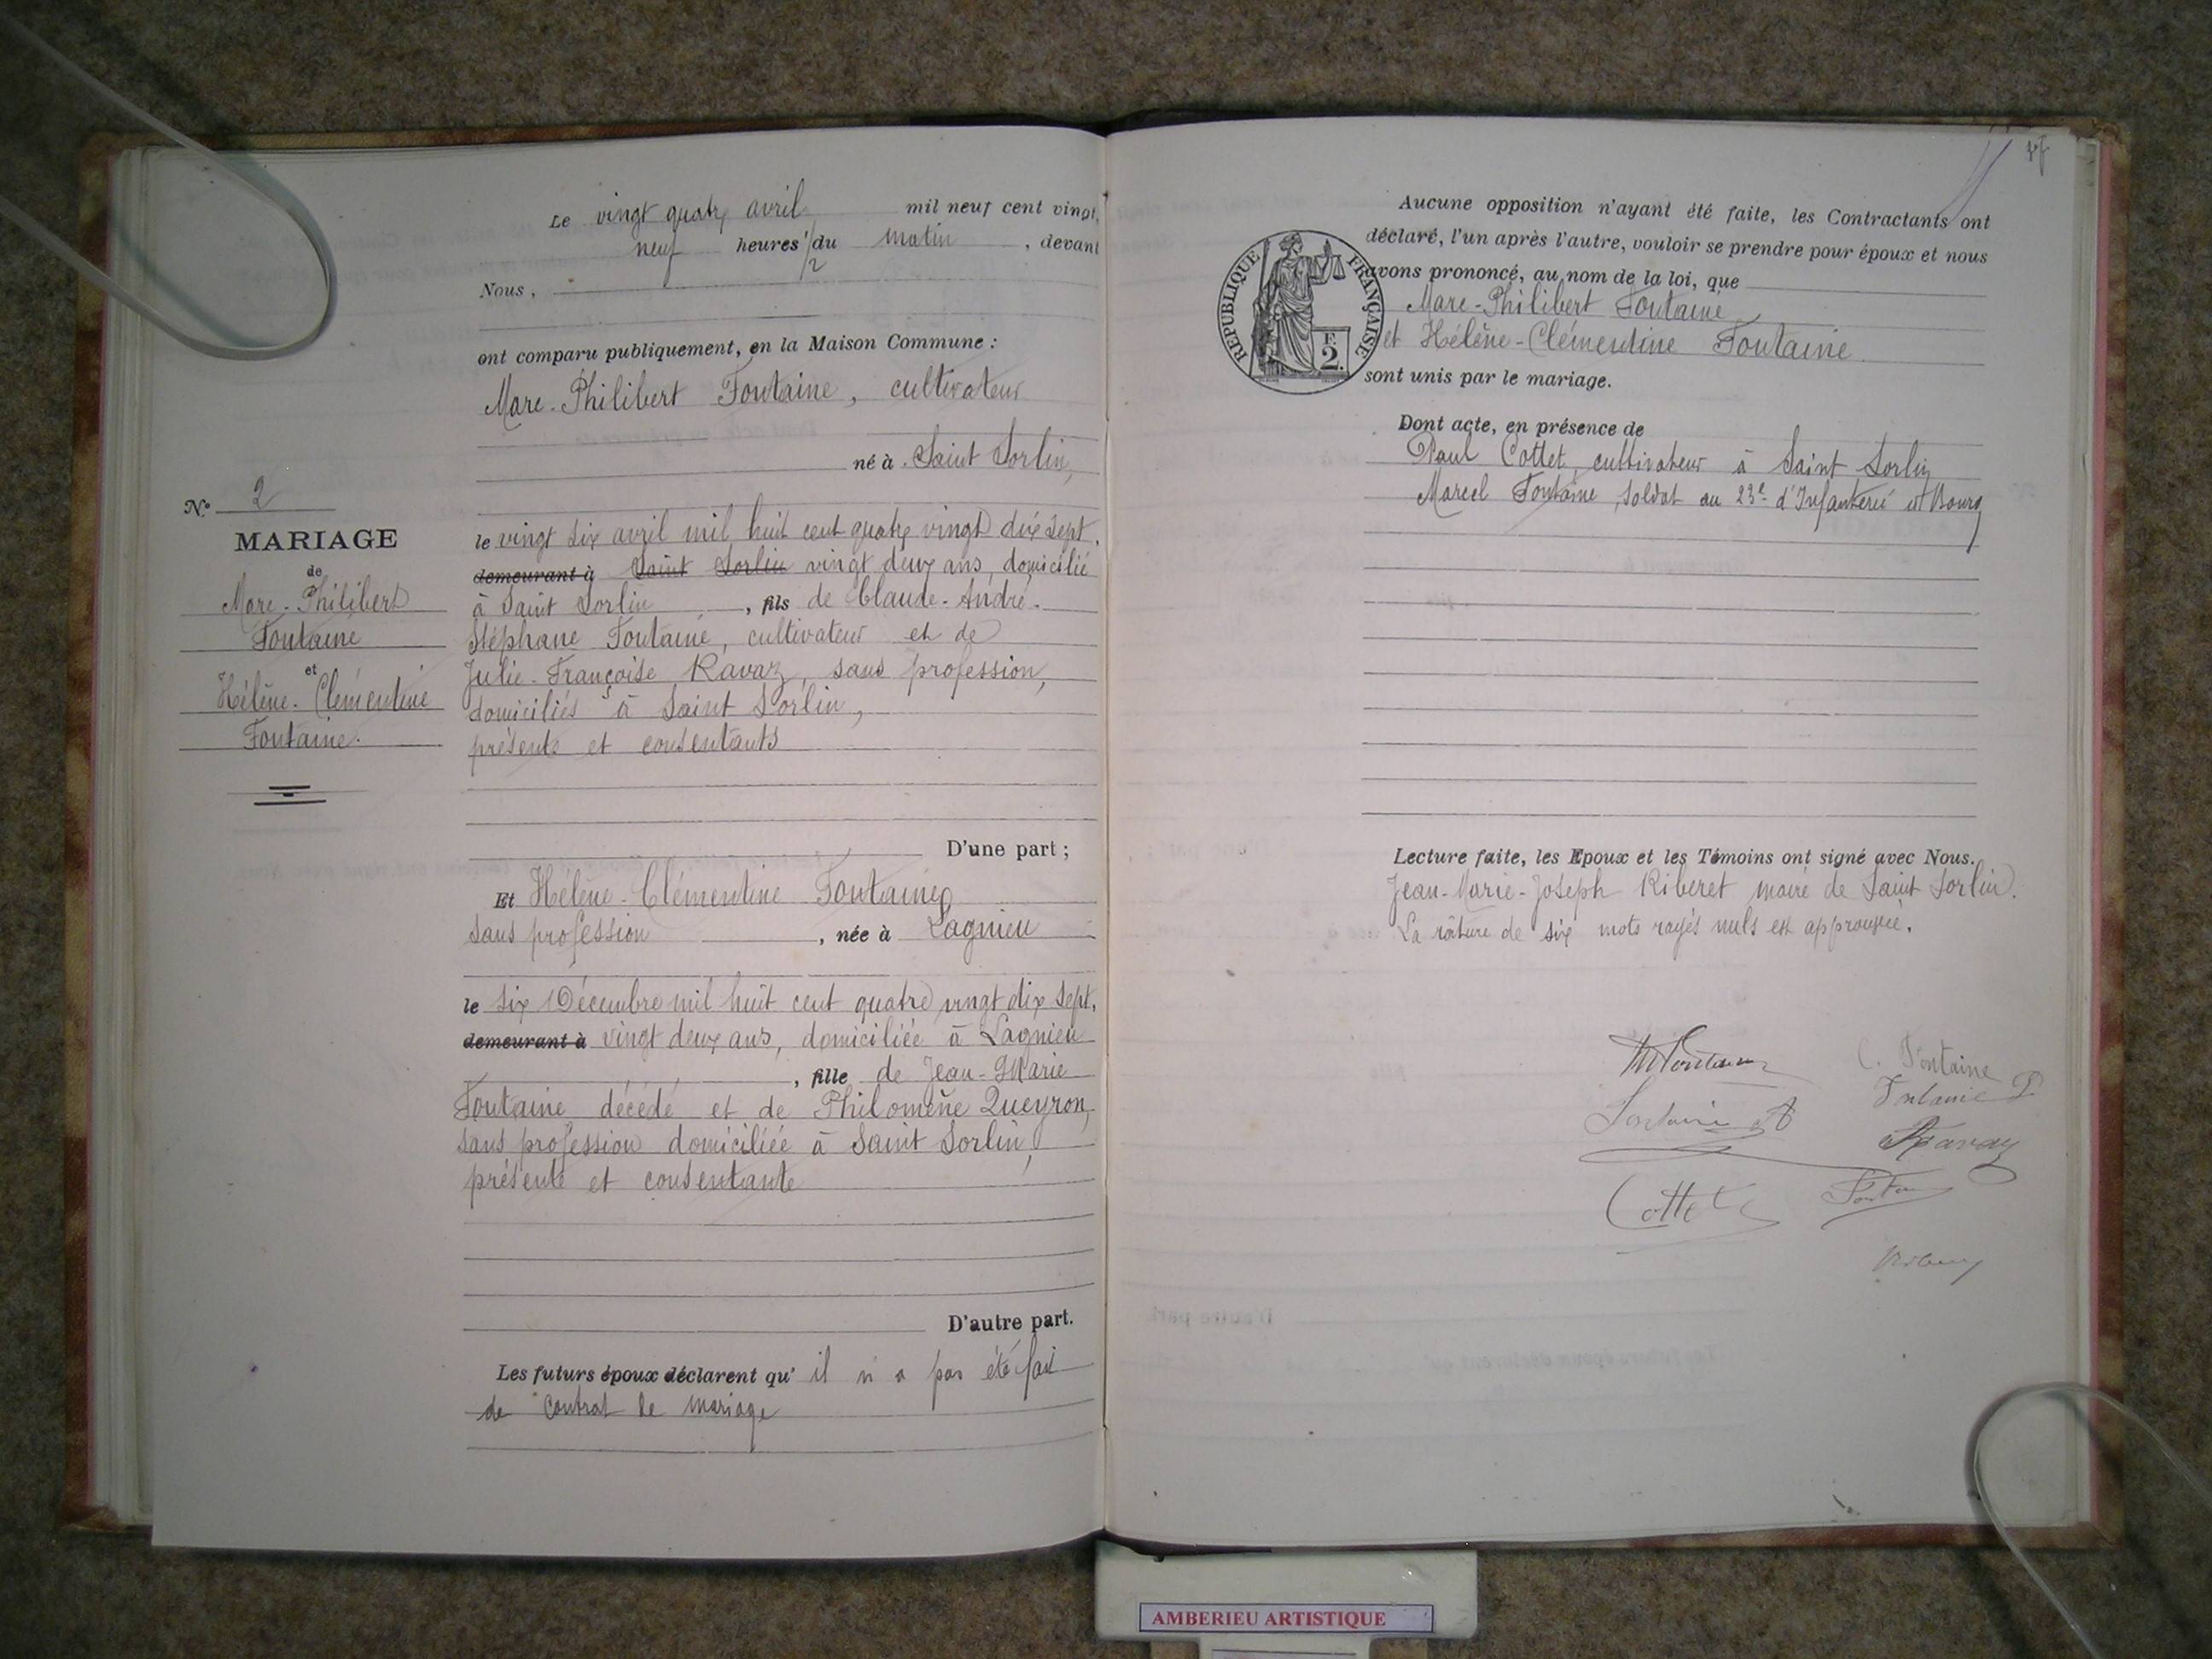 Le vingt quatre avril mil neuf cent vingt,
neuf heures 1/2 du matin , devant
Nous,
ont comparu publiquement, en la Maison Commune :
Marc-Philibert Fontaine, cultivateur
né à Saint Sorlin,
le vingt six avril mil huit cent quatre vingt dix sept,
demeurant à Saint Sorlin vingt deux ans, domicilié
à Saint Sorlin , fils de Claude-André-
Stéphane Fontaine, cultivateur et de
Julie-Françoise Ravaz, sans profession,
domiciliés à Saint Sorlin,
présents et consentants
D'une part ;
Et Hélène-Clémentine Fontaine,
sans profession , née à Lagnieu
le six Décembre mil huit cent quatre vingt dix sept,
demeurant à vingt deux ans, domiciliée à Lagnieu
, fille de Jean-Marie
Fontaine décédé et de Philomène Queyron,
sans profession domiciliée à Saint Sorlin,
présente et consentante
D'autre part.
Les futurs époux déclarent qu'il n'a pas été fait
de contrat de mariage
N° 2
MARIAGE
de
Marc-Philibert
Fontaine
et
Hélène-Clémentine
Fontaine.
Aucune opposition n'ayant été faite, les Contractants ont
déclaré, l'un après l'autre, vouloir se prendre pour époux et nous
avons prononcé, au nom de la loi, que
Marc-Philibert Fontaine
et Hélène-Clémentine Fontaine
sont unis par le mariage.
REPUBLIQUE FRANÇAISE
F.
2.
Dont acte, en présence de
Paul Cottet, cultivateur à Saint Sorlin
Marcel Fontaine, soldat au 23e d'Infanterie à Bourg
Lecture faite, les Epoux et les Témoins ont signé avec Nous.
Jean-Marie-Joseph Riberet maire de Saint Sorlin.
La rature de six mots rayés nuls est approuvée.
M Fontaine
C. Fontaine
Fontaine P
Fontaine A
Ravaz
Cottet
AMBERIEU ARTISTIQUE